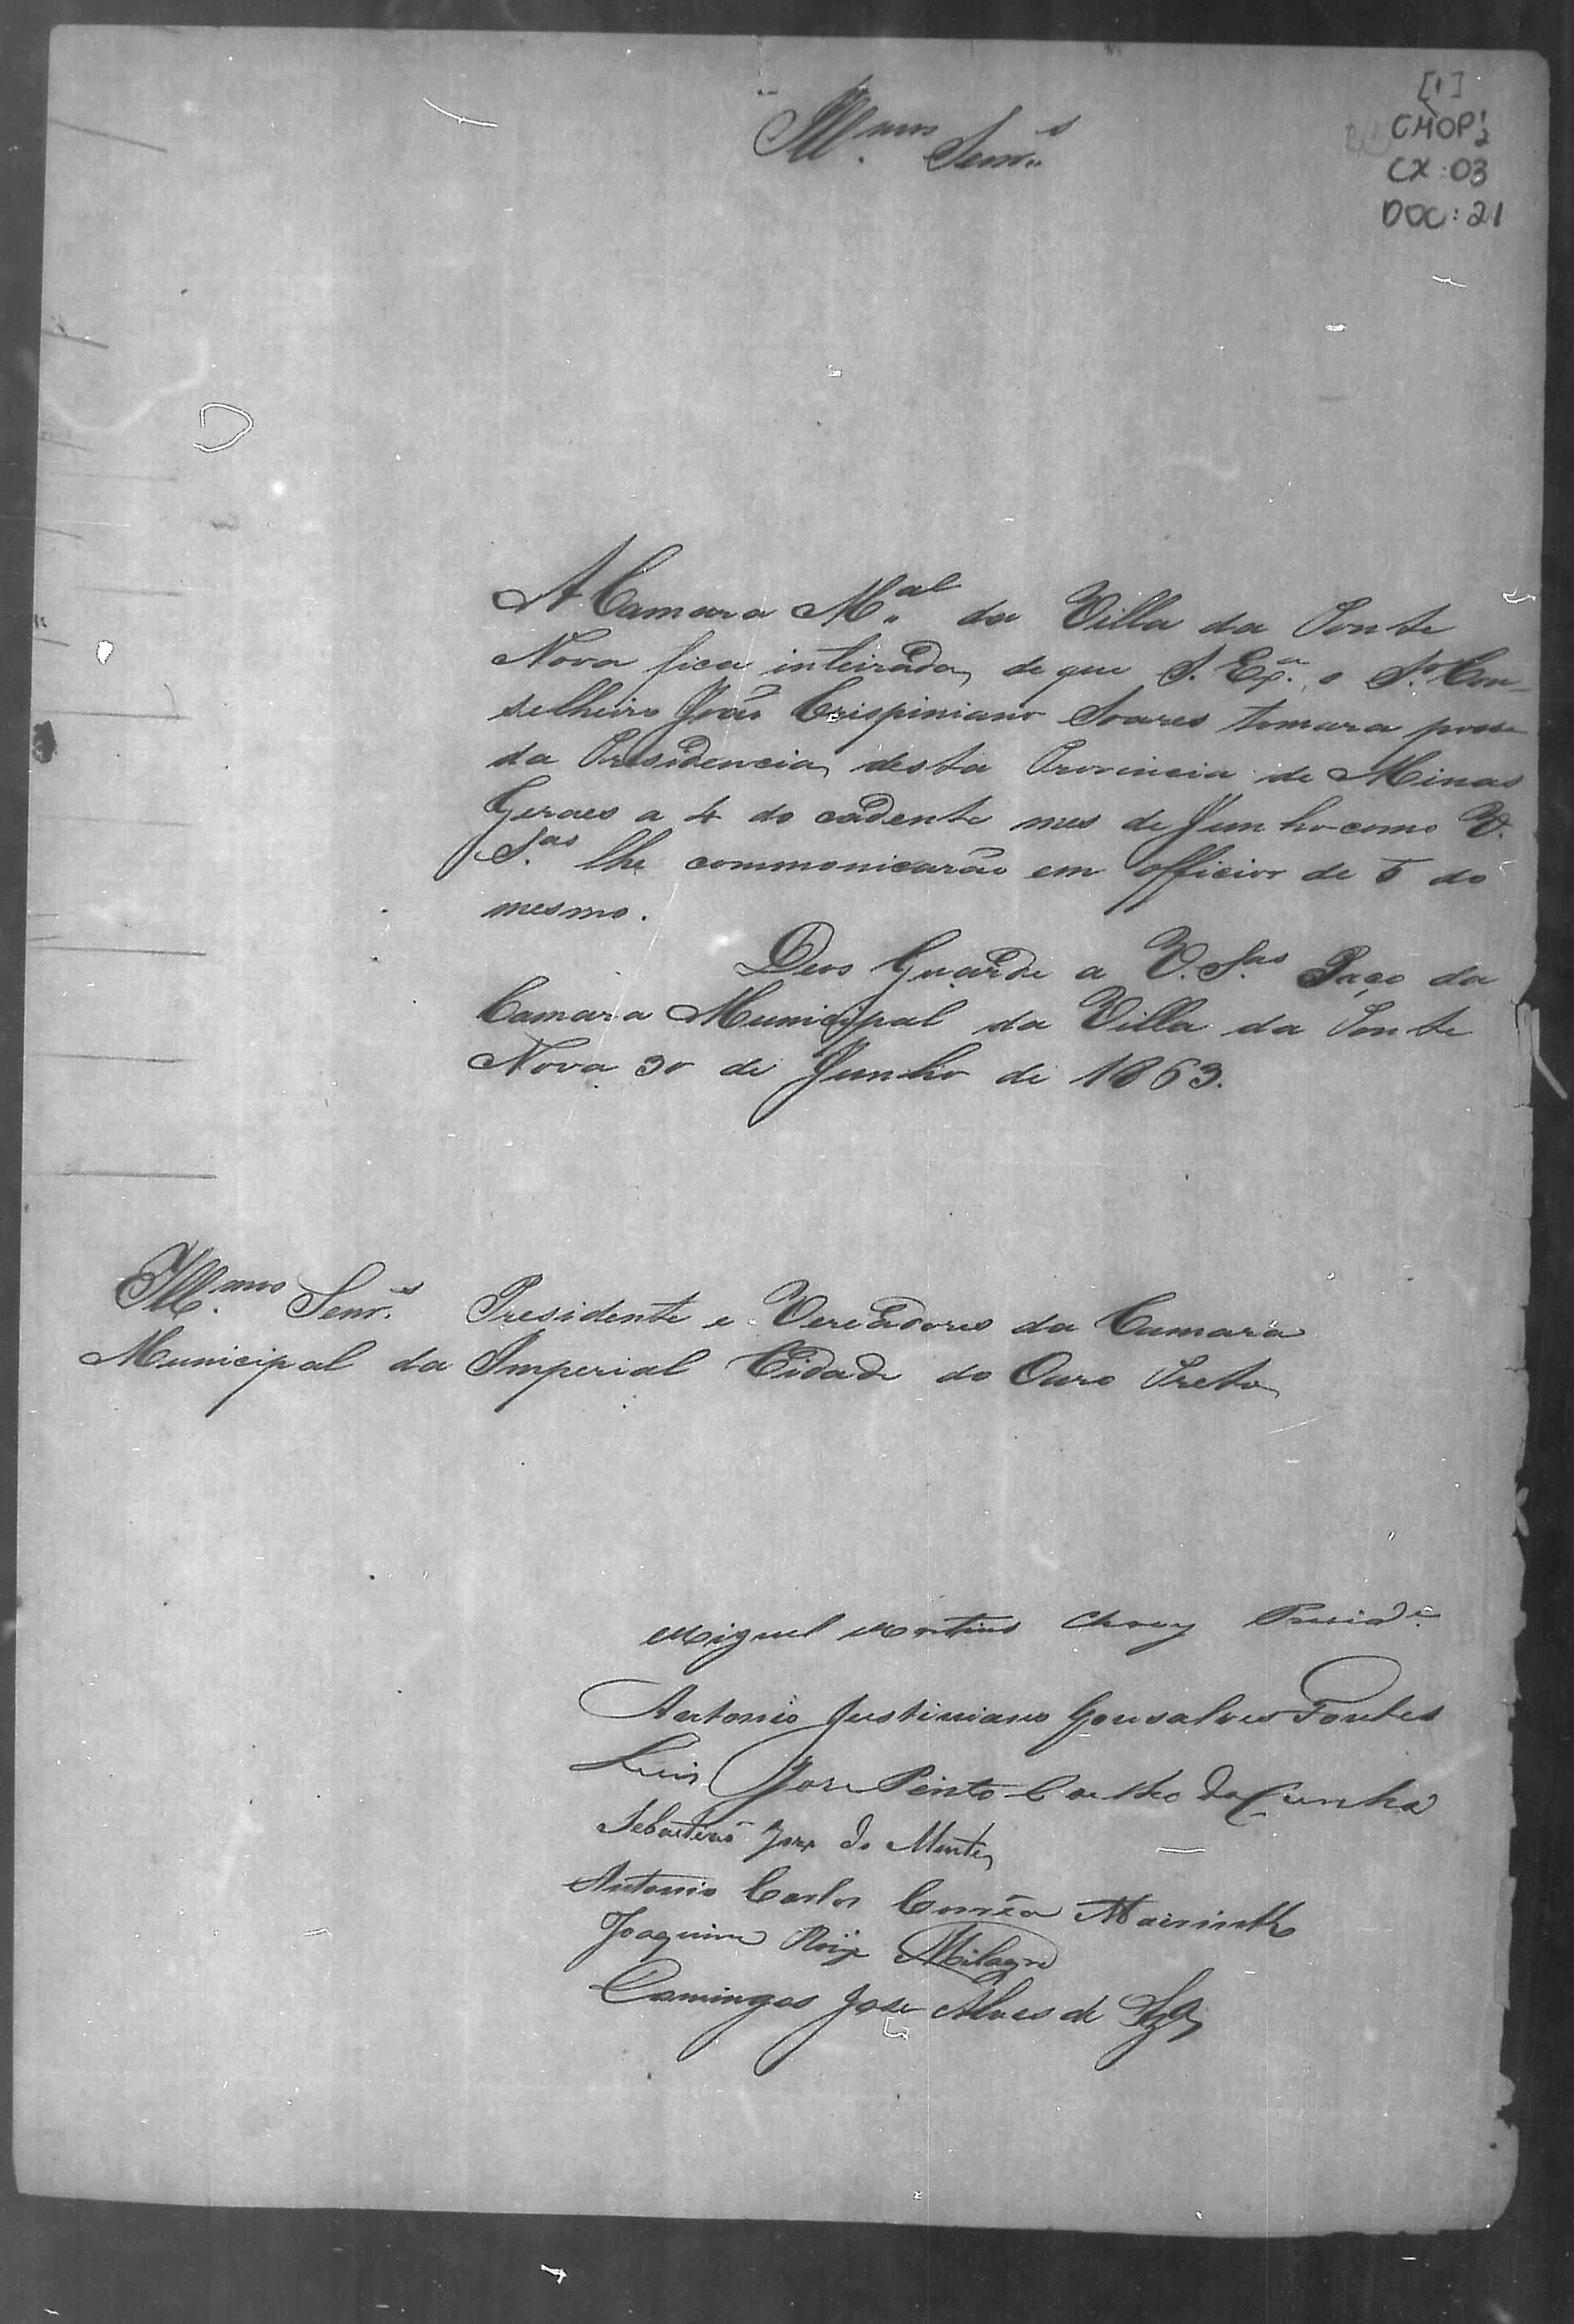 [1]
CMOP 1/2
CX: 03
DOC: 21
Ill.mos Senr.s
A Camara M.al da Villa da Ponte
Nova fica inteirada, de que S. Ex.a o Sr. Con-
selheiro João Crispiniano Soares tomara posse
da Presidencia, desta Provincia de Minas
Geraes a 4 do cadente mes de Junho como V.
S.as lhe commonicarão em officio de 5 do
mesmo.
Deos Guarde a V. S.as Paço da
Camara Municipal da Villa da Ponte
Nova 30 de Junho de 1863.
Ill.mos Senr.s Presidente e Vereadores da Camara
Municipal da Imperial Cidade do Ouro Preto
Miguel Martins Chaves Presid.e
Antonio Justiniano Gonsalves Fontes
Luis Jose Pinto Coelho da Cunha
Sebastião Jose do Monte
Antonio Carlos Corrêa Mairink
Joaquim Roiz Milagre
Domingos Jose Alves de